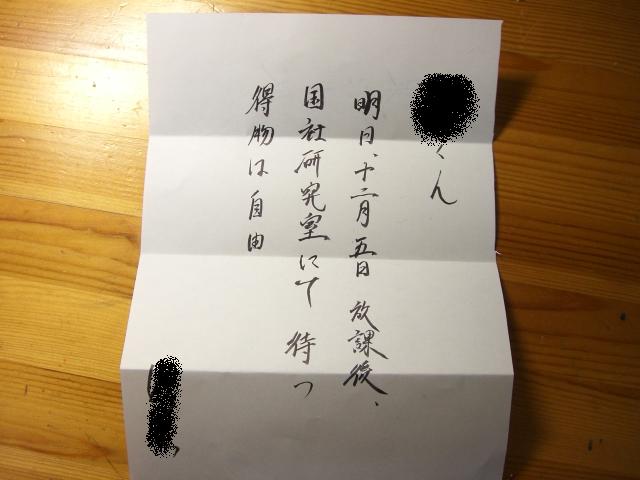 くん
明日、十二月五日 放課後、
国社研究室にて 待つ
得物は自由